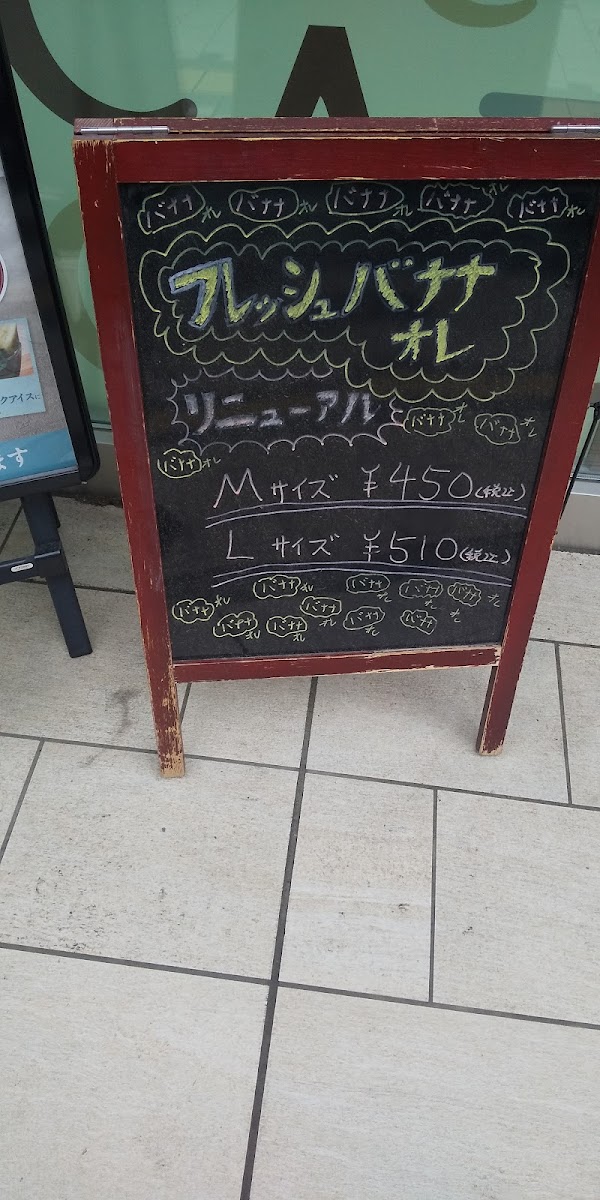 バナナオレ バナナオレ バナナオレ バナナオレ バナナオレ
フレッシュバナナ
オレ
リニューアル
バナナオレ バナナオレ
バナナオレ
Mサイズ ¥450(税込)
Lサイズ ¥510(税込)
バナナオレ バナナオレ バナナオレ バナナオレ バナナオレ
バナナオレ バナナオレ バナナオレ バナナオレ バナナオレ
クアイスに
ます